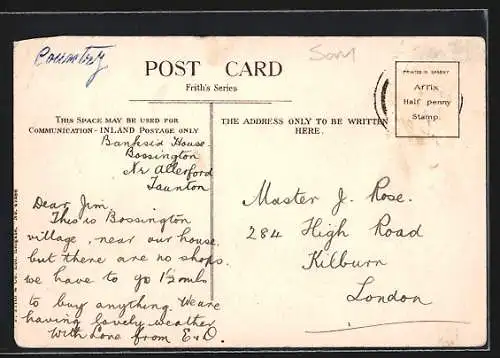 Country
Som
POST CARD
Frith's Series
PRINTED IN SAXONY
Affix
Half penny
Stamp.
THIS SPACE MAY BE USED FOR
COMMUNICATION - INLAND POSTAGE ONLY
THE ADDRESS ONLY TO BE WRITTEN
HERE.
Bankside House.
Bossington
Nr Allerford
Taunton
Dear Jim.
This is Bossington
village, near our house
but there are no shops.
we have to go 1½ mls
to buy anything. We are
having lovely weather
With love from E & D.
Master J. Rose.
284 High Road
Kilburn
London